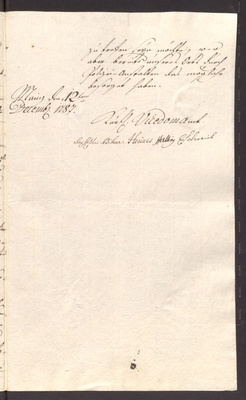 zu treffen seyn möchte, w
aber bereits unseres Orts durch
Polizey-Anstalten das mögliche
besorget haben.
Mainz den 12ten
Decemb. 1787.
Kurf. Vicedomamt